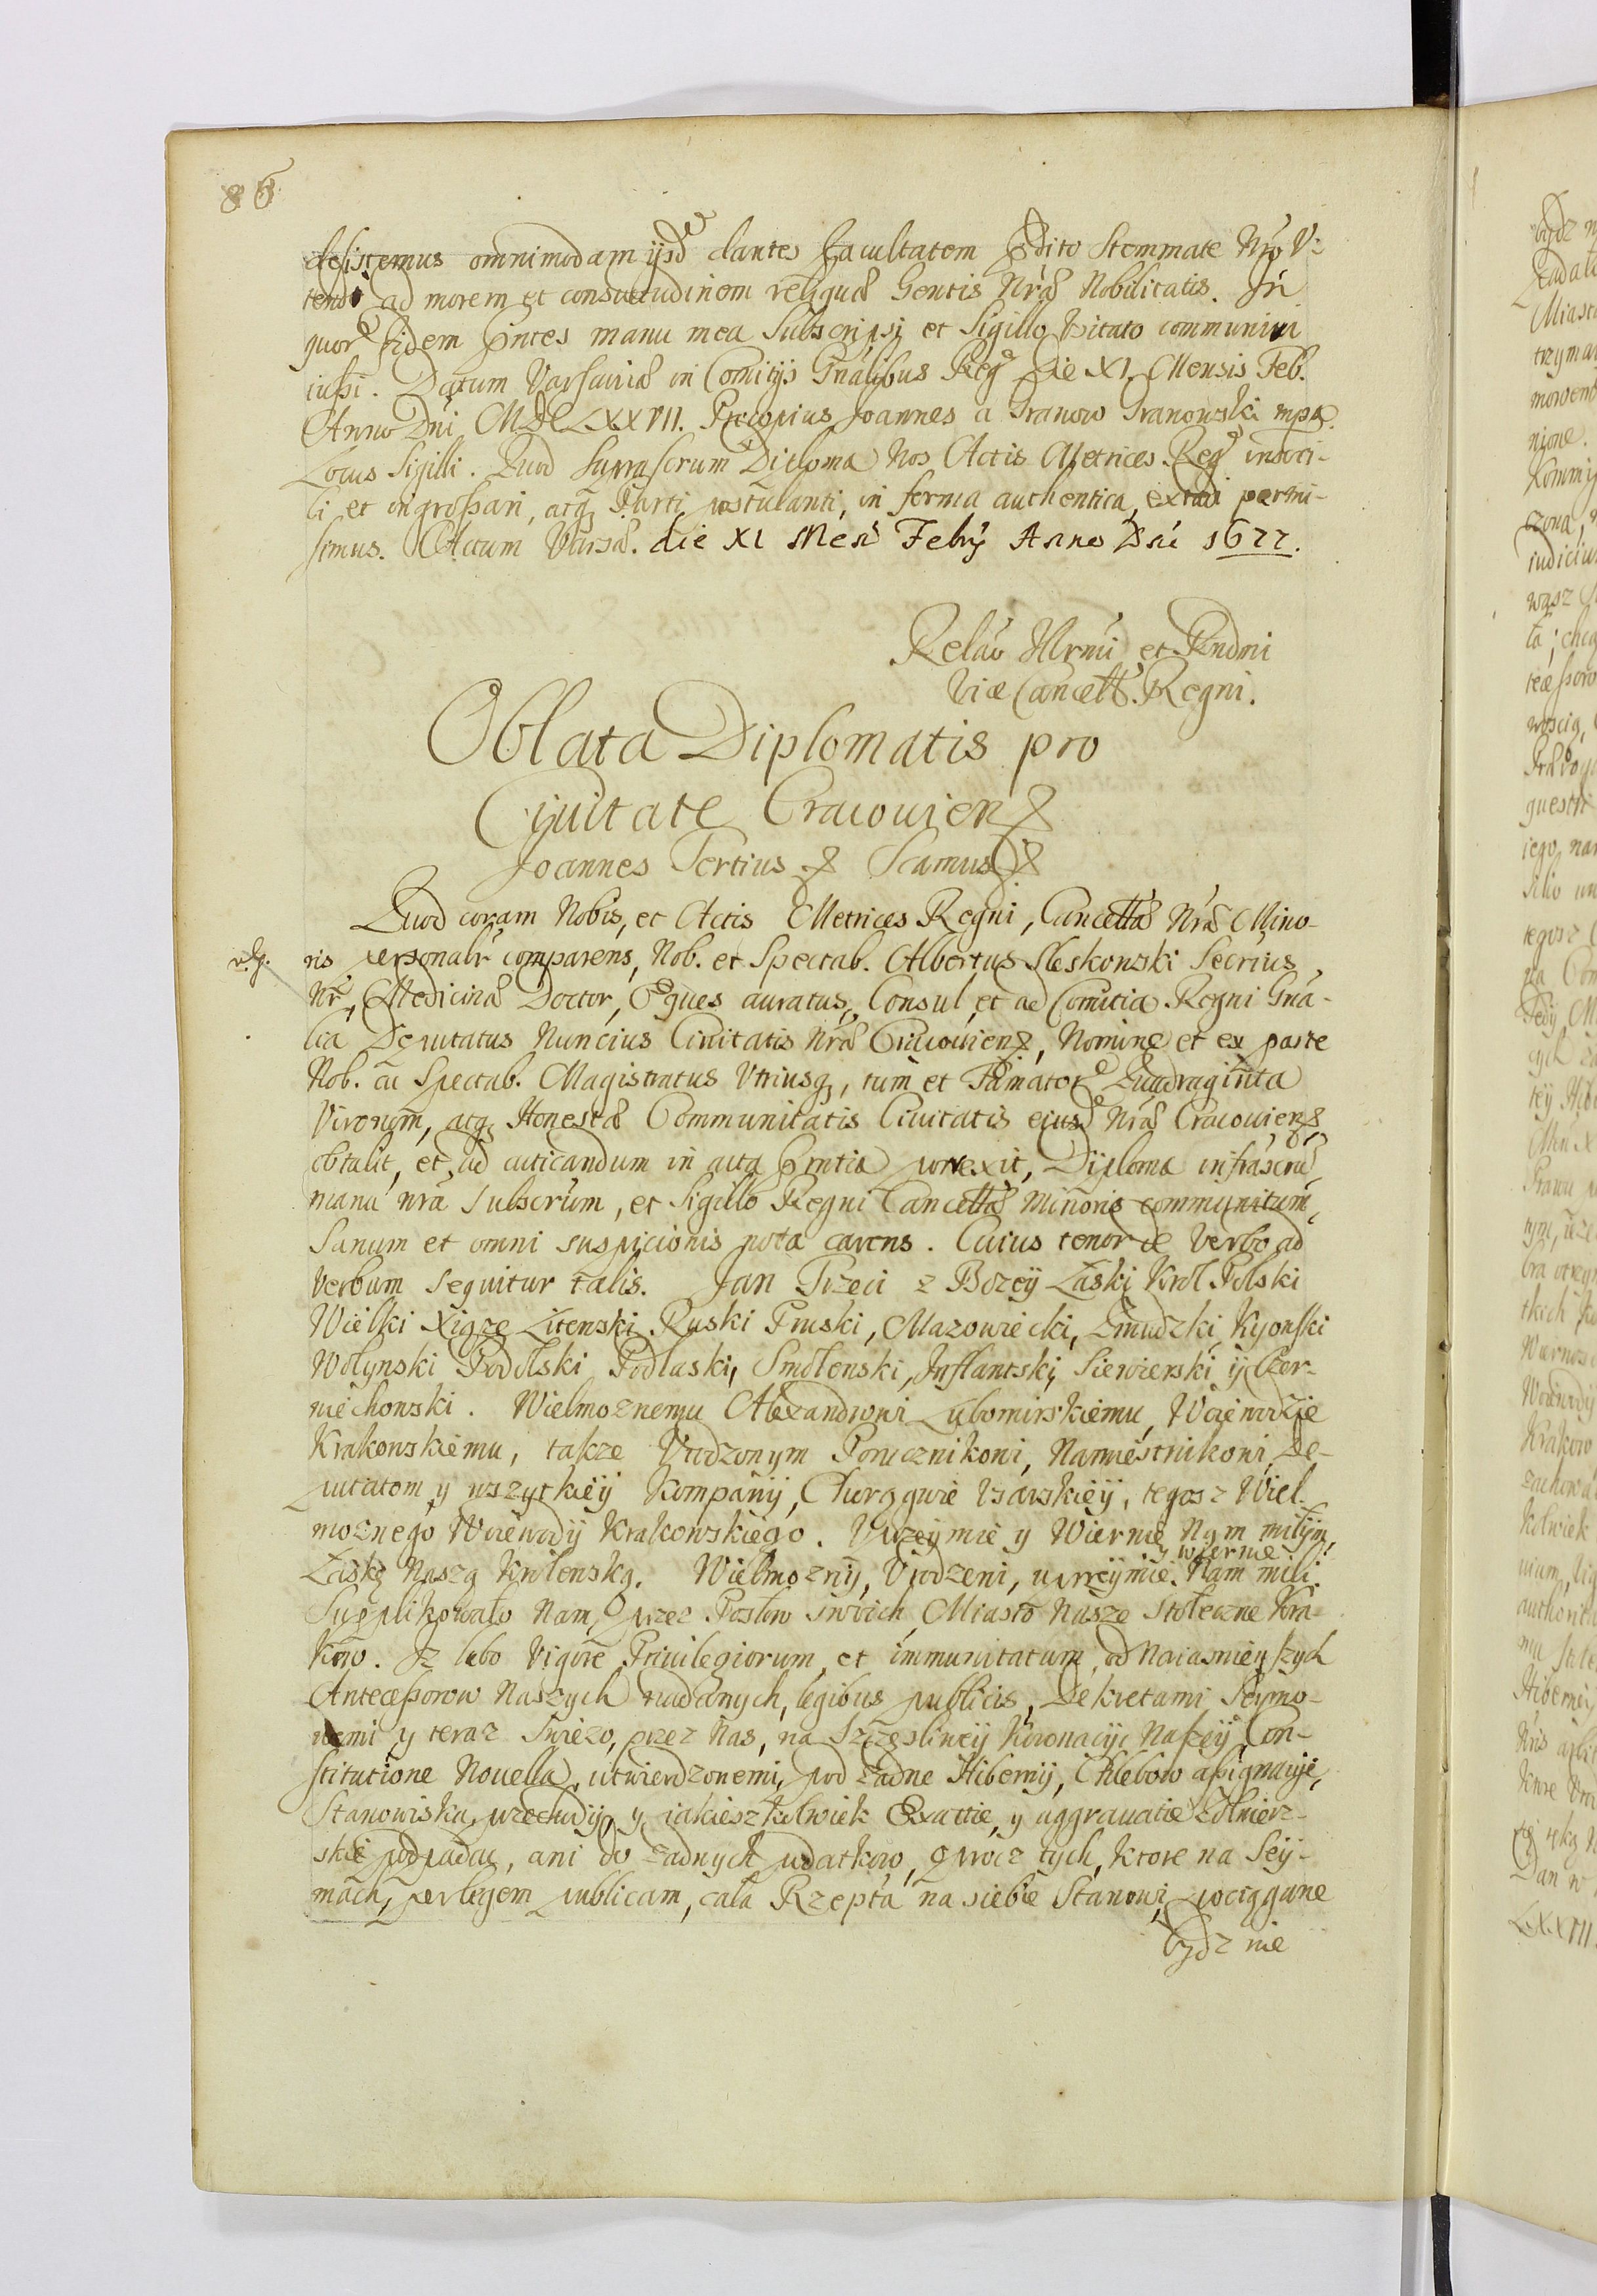 86
desistemus omnimodam ijsd dantes Facultatem Pdito Stemmate Nro V:
tendi ad morem et consuetudinem reliquæ Gentis Nræ Nobilitatis. In
quor fidem Pntes manu mea Subscripsi et Sigillo Vsitato communiri
iussi. Datum Varsauiæ in Comitijs Gnalibus Reg Die XI Mensis Feb.
Anno Dni MDCLXXVII. Procopius Joannes a Granow Granowski mpa.
Locus Sigilli. Quod Suprascrum Diploma Nos Actis Metrices Reg inscri-
bi et ingrossari, atq Parti postulanti, in forma authentica, extradi permi-
simus. Actum Varsæ. die XI Mens Febrij Anno Dni 1677.
Relao Illrmi et Rndmi
Vice Cancell. Regni.
Oblata Diplomatis pro
Ciuitate Cracouien
Joannes Tertius Scamus
Quod coram Nobis, et Actis Metrices Regni, Cancellæ Nræ Mino-
ris personalr comparens, Nob. et Spectab. Albertus Sleskowski Secrius
Nr, Medicinæ Doctor, Eques auratus, Consul, et ad Comitia Regni Gna-
lia Deputatus Nuncius Ciuitatis Nræ Cracouien, Nomine et ex parte
Nob. ac Spectab. Magistratus Vtriusq, tum et Quadraginta
Virorum, atq Honestæ Communitatis Ciuitatis eiusd Nræ Cracouien
obtulit, et ad acticandum in acta Pntia porrexit, Diploma infrascru
manu nra Subscrum, et Sigillo Regni Cancellæ Minoris communitum,
Sanum et omni suspicionis nota carens. Cuius tenor de Verbo ad
Verbum sequitur talis. Jan Trzeci z Bozey Łaski Krol Polski
Wielki Xiąze Litewski Ruski Pruski, Mazowiecki, Zmudzki Kyowski
Wolynski Podolski Podlaski, Smolenski, Inflantski, Siewierski y Czer-
niechowski. Wielmoznemu Alexandrowi Lubomirskiemu, Woiewodzie
Krakowskiemu, takze Vrodzonym Porucznikowi, Namiestnikowi, De-
putatom y wszytkiey Kompanij, Chorągwie Vsarskiey, tegosz Wiel-
moznego Woiewody Krakowskiego. Vprzeymie y Wiernie Nam miłym,
Łaskę Naszą Krolewską. Wielmozny, Vrodzeni, uprzeymie y wiernie Nam mili.
Supplikowało Nam, przez Posłow swoich, Miasto Nasze Stołeczne Kra-
kow. Iz lubo Vigore Priuilegiorum et immunitatum, od Naiasnieyszych
Antecessorow Naszych nadanych, legibus publicis, Dekretami Seymo-
wemi y teraz swiezo, przez Nas, na Szczęsliwey Koronacyi Naszey Con-
stitutione Nouella, utwierdzonemi, pod zadne Hiberny, Chlebow assignacye,
Stanowiska, przechody, y iakieszkolwiek Exactie, y aggrauatie Zołnierz-
skie podpadac, ani do zadnych podatkow, oprocz tych, ktore na Sey-
mach, per legem publicam, cała Rzepta na siebie Stanowi, pociągane
bydz nie